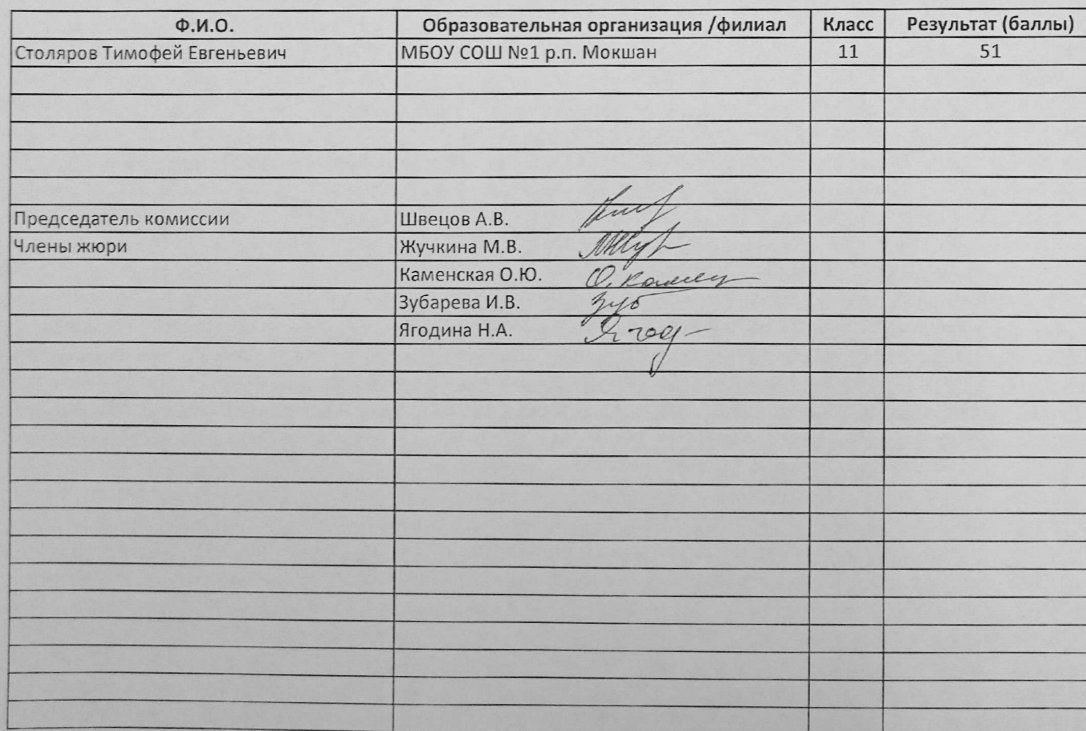 Ф.И.О. Образовательная организация /филиал Класс Результат (баллы)
Столяров Тимофей Евгеньевич МБОУ СОШ №1 р.п. Мокшан 11 51
Председатель комиссии Швецов А.В.
Члены жюри Жучкина М.В.
Каменская О.Ю.
Зубарева И.В. Зуб
Ягодина Н.А. Ягод